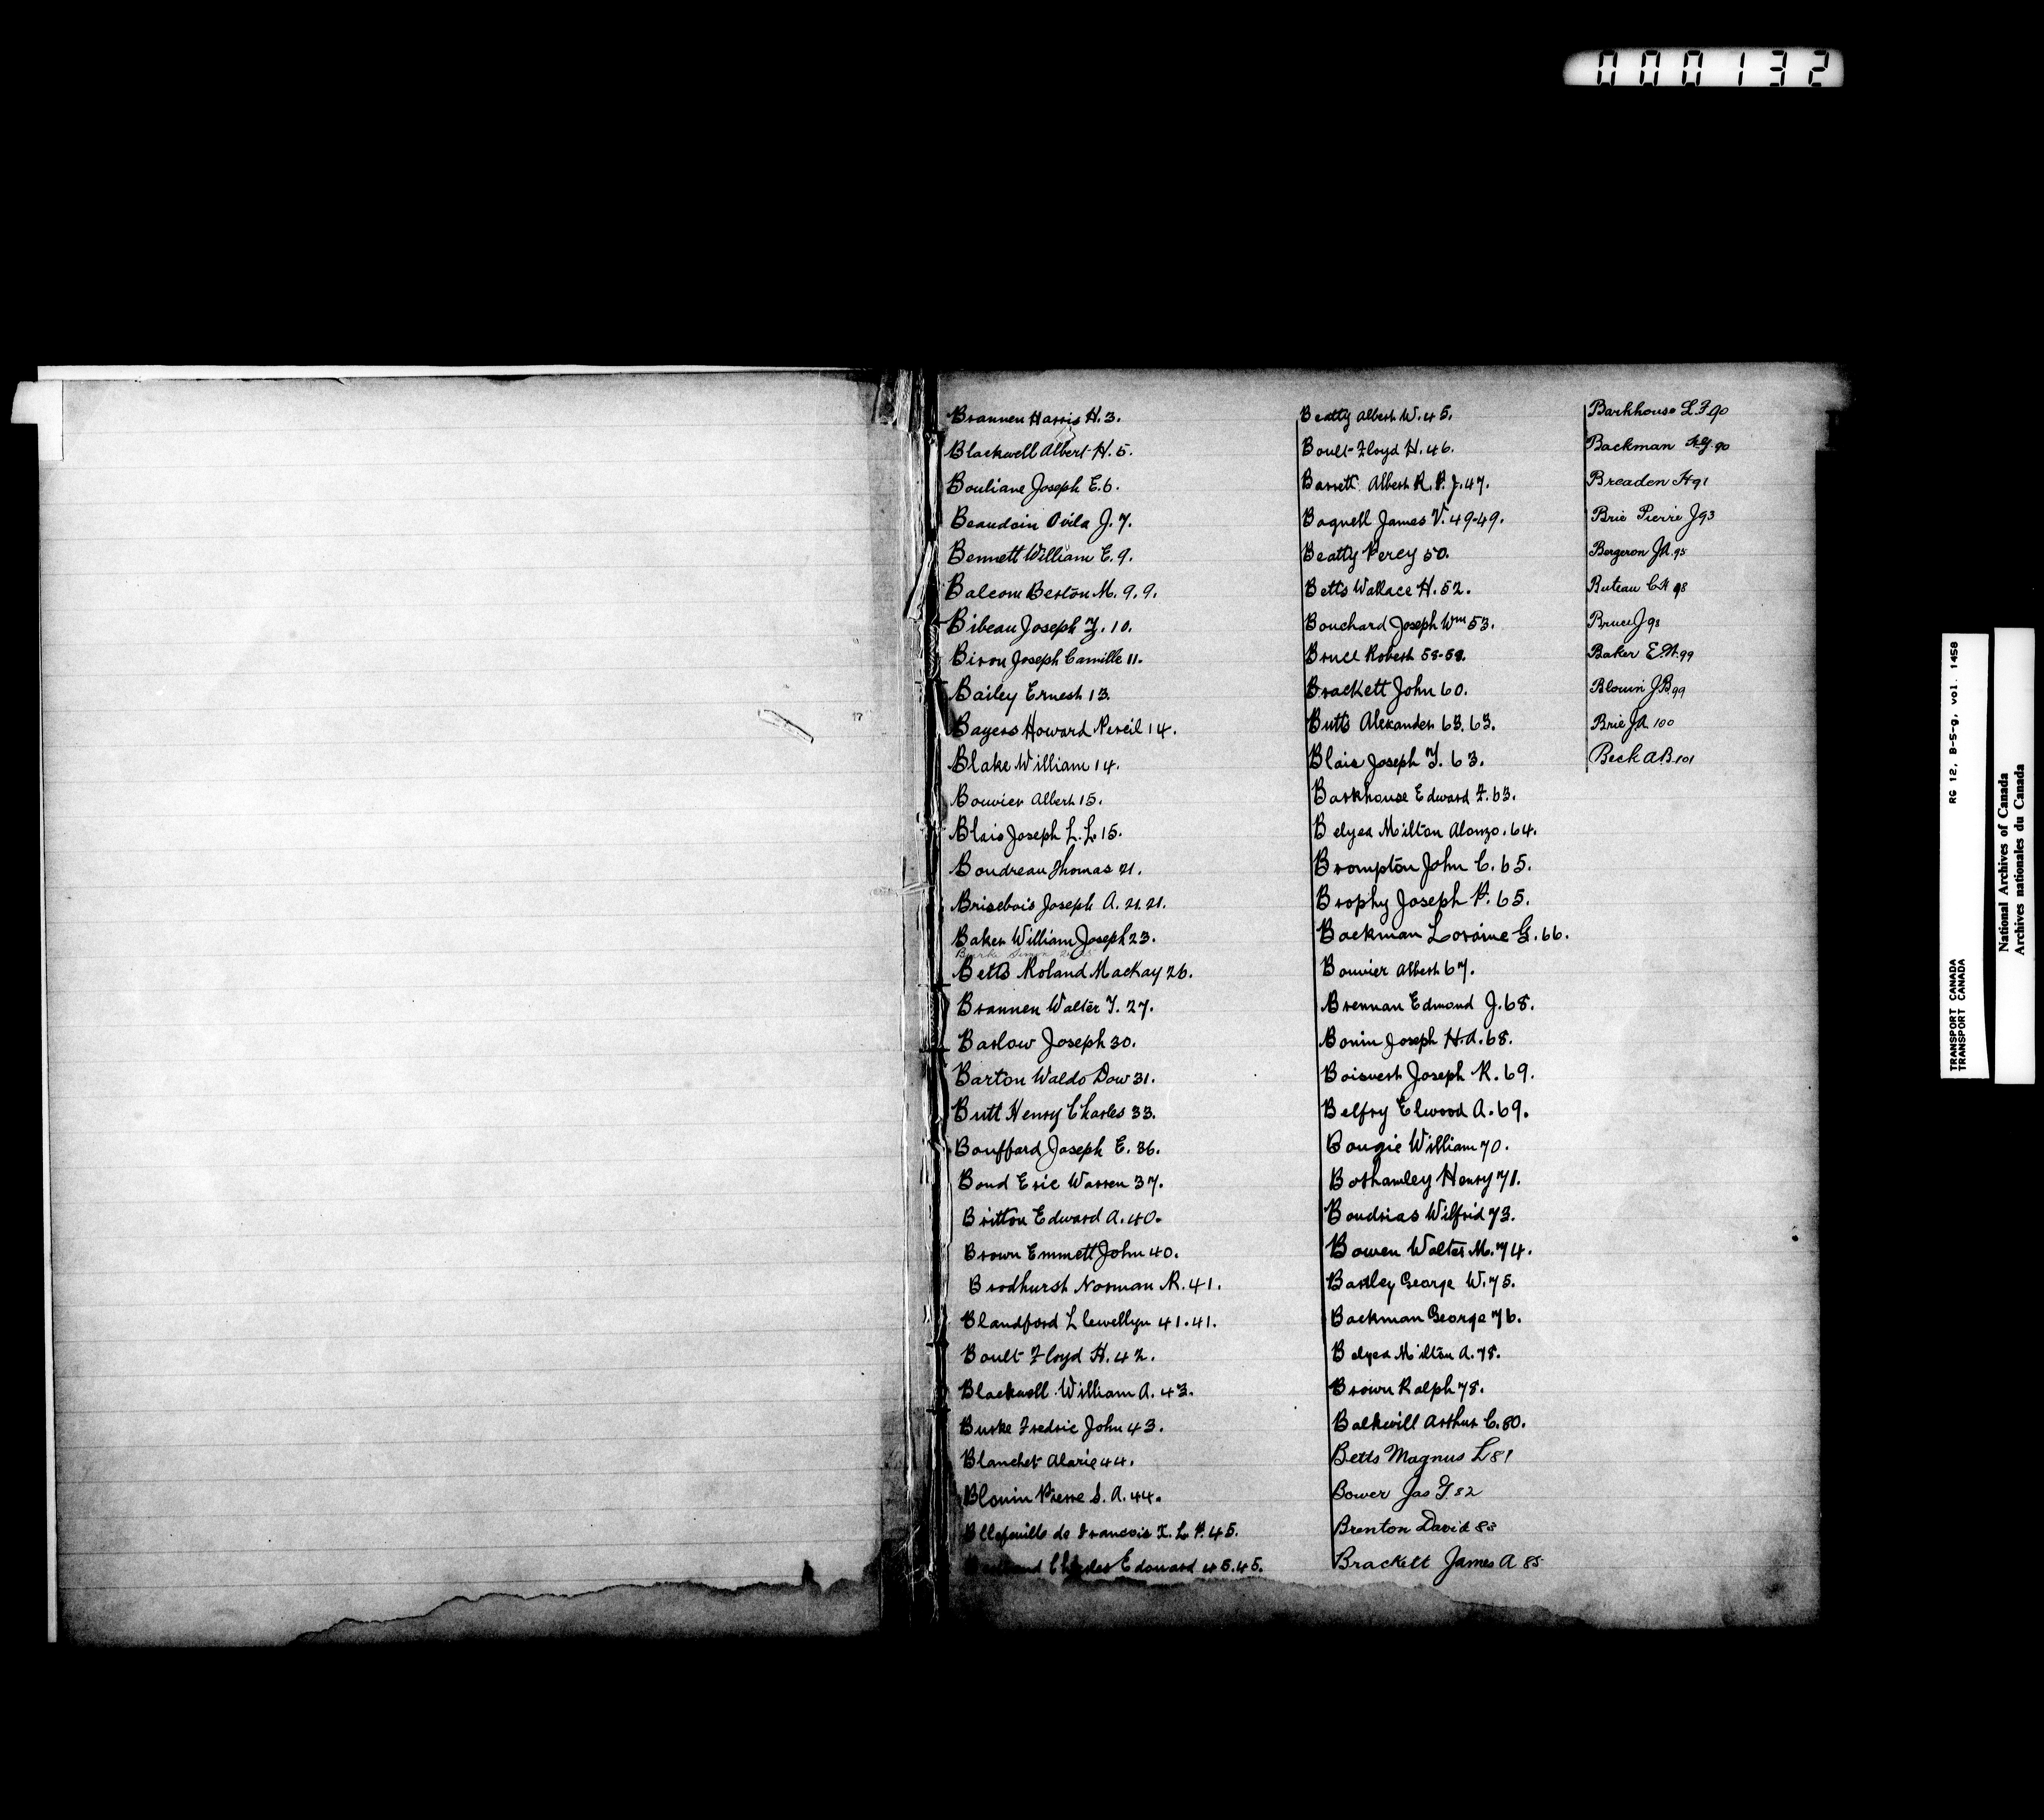 000132
Brannen Harris H. 3.
Blackwell Albert H. 5.
Bouliane Joseph E. 6.
Beaudoin Ovila J. 7.
Bennett William E. 9.
Balcom Berton M. 9. 9.
Bibeau Joseph Z. 10.
Biron Joseph Camille 11.
Bailey Ernest 13.
Bayers Howard Nereil 14.
Blake William 14.
Bouvier Albert 15.
Blais Joseph L. L. 15.
Boudreau Thomas 21.
Brisebois Joseph A. 21. 21.
Baker William Joseph 23.
Betts Roland MacKay 26.
Brannen Walter T. 27.
Barlow Joseph 30.
Barton Waldo Dow 31.
Butt Henry Charles 33.
Bouffard Joseph E. 36.
Bond Eric Warren 37.
Britton Edward A. 40.
Brown Emmett John 40.
Brodhurst Norman R. 41.
Blandford Llewellyn 41. 41.
Boult Floyd H. 42.
Blackwell William A. 43.
Burke Fredric John 43.
Blanchet Alarie 44.
Blouin Pierre S. A. 44.
de Francois X. L. P. 45.
Charles Edouard 45. 45.
Beatty Albert W. 45.
Boult Floyd H. 46.
Barrett Albert R. P. J. 47.
Bagnell James V. 49-49.
Beatty Percy 50.
Betts Wallace H. 52.
Bouchard Joseph Wm 53.
Bruce Robert 58-58.
Brackett John 60.
Butts Alexander 63. 63.
Blais Joseph T. 63.
Barkhouse Edward F. 63.
Belyea Milton Alonzo. 64.
Brompton John C. 65.
Brophy Joseph P. 65.
Backman Loraine G. 66.
Bouvier Albert 67.
Brennan Edmond J. 68.
Bonin Joseph H. A. 68.
Boisvert Joseph R. 69.
Belfry Elwood A. 69.
Bougie William 70.
Bothamley Henry 71.
Boudrias Wilfrid 73.
Bowen Walter M. 74.
Bartley George W. 75.
Backman George 76.
Belyea Milton A. 78.
Brown Ralph 78.
Balkwill Arthur C. 80.
Betts Magnus L 81
Bower Jas G 82
Brenton David 83
Brackett James A 85
Barkhouse L. F. 90
Backman 90
Breaden H 91
Brie Pierre J 93
Bergeron J.A. 95
Buteau C.A 98
Bruce J 98
Baker E.W. 99
Blouin J.B. 99
Brie J.A. 100
Beck A.B. 101
TRANSPORT CANADA RG 12, B-5-g, vol. 1458
TRANSPORT CANADA
National Archives of Canada
Archives nationales du Canada